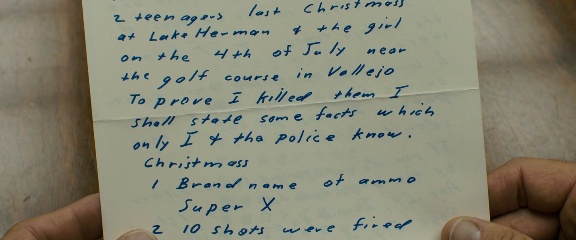 2 teenagers last Christmass
at Lake Herman & the girl
on the 4th of July near
the golf course in Vallejo
To prove I killed them I
shall state some facts which
only I & the police know.
Christmass
1 Brand name of ammo
Super X
2 10 shots were fired